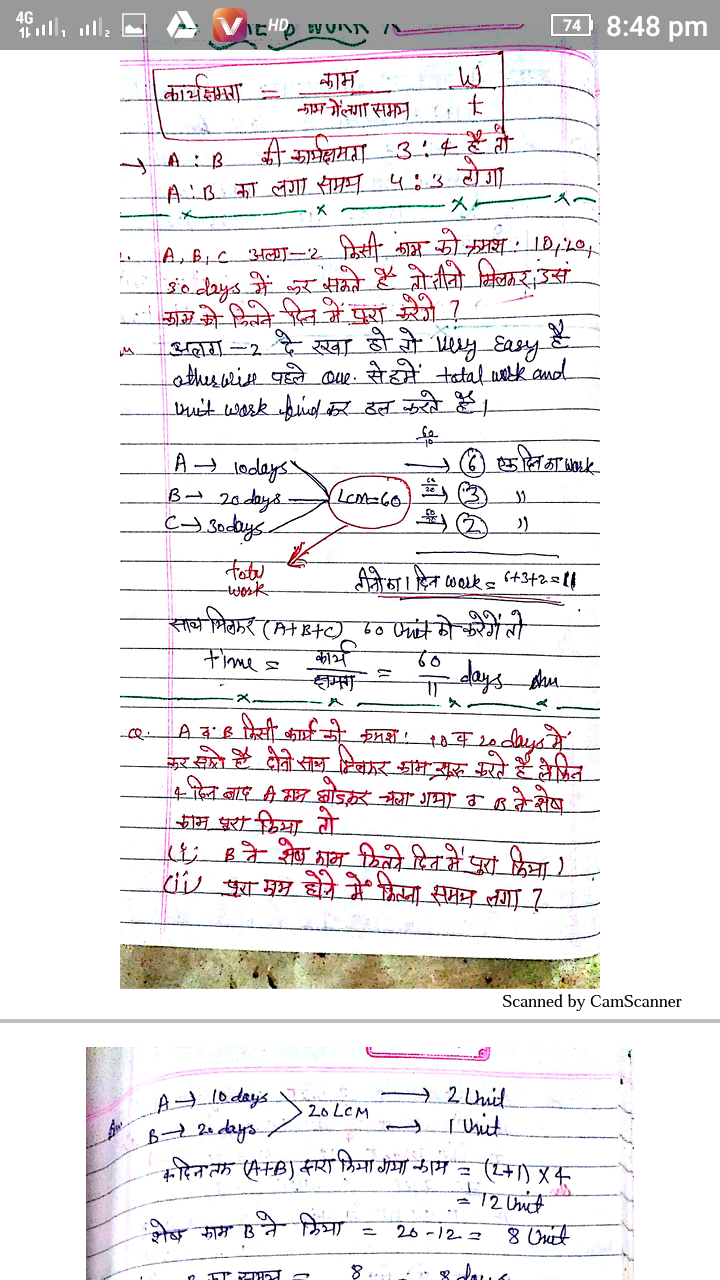 4G 1 2 HD 74 8:48 pm
WORK
कार्यक्षमता = काम / काम में लगा समय W / t
→ A : B की कार्यक्षमता 3 : 4 है तो
A : B का लगा समय 4 : 3 होगा
A, B, C अलग-2 किसी काम को क्रमश: 10, 20,
30 days में कर सकते है तो तीनो मिलकर उस
काम को कितने दिन में पुरा करेगे ?
अलग-2 दे रखा हो तो Very Easy है
otherwise पहले Que. से हमें total work and
Unit work find कर हल करते है।
60/10
A → 10 days → 6 एक दिन का work
B → 20 days LCM=60 60/20 → 3 "
C → 30 days 60/30 → 2 "
total
work
तीनो का 1 दिन work = 6+3+2 = 11
साथ मिलकर (A+B+C) 60 Unit को करेगें तो
time = कार्य / क्षमता = 60 / 11 days
Q. A व B किसी कार्य को क्रमश: 10 व 20 days में
कर सकते है दोनो साथ मिलकर काम शुरू करते है लेकिन
4 दिन बाद A काम छोडकर चला गया व B ने शेष
काम पुरा किया तो
(i) B ने शेष काम कितने दिन में पुरा किया)
(ii) पुरा काम होने में कितना समय लगा ?
Scanned by CamScanner
A → 10 days → 2 Unit
20 LCM
B → 20 days → 1 Unit
4 दिन तक (A+B) द्वारा किया गया काम = (2+1) X 4
= 12 Unit
शेष काम B ने किया = 20 - 12 = 8 Unit